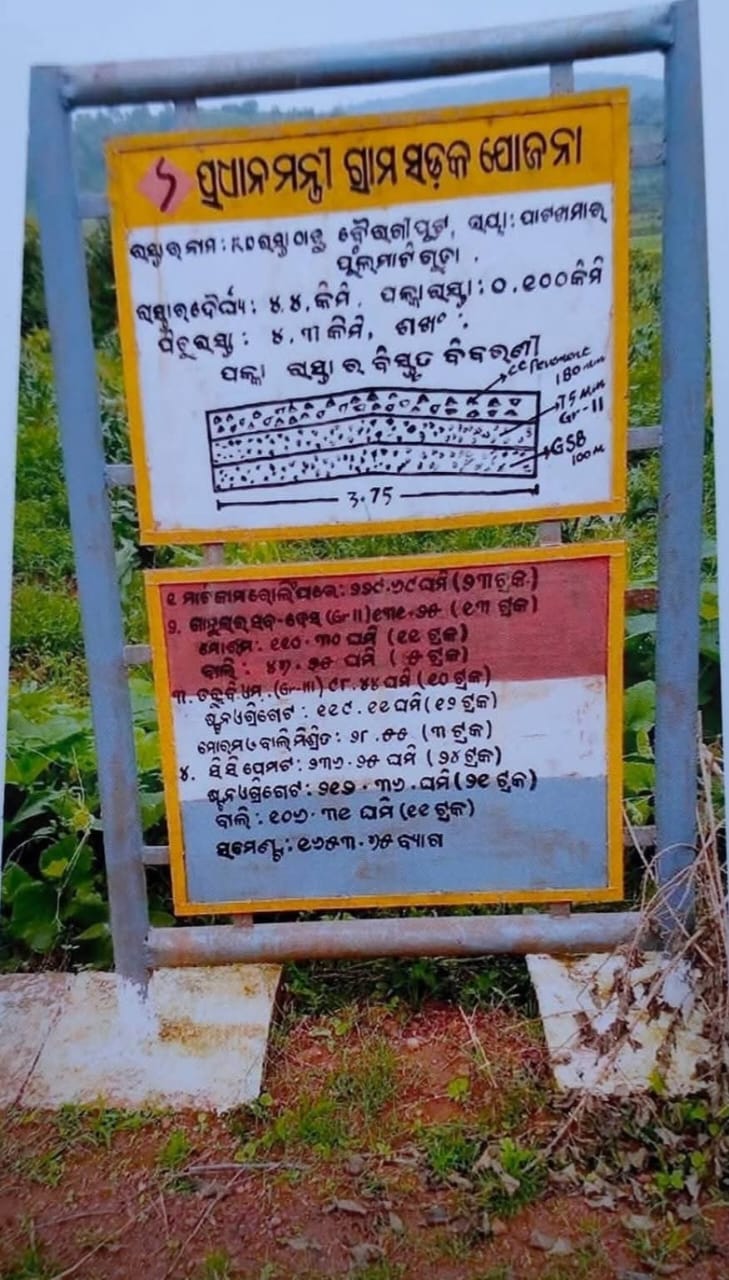 ପ୍ରଧାନମନ୍ତ୍ରୀ ଗ୍ରାମ ସଡ଼କ ଯୋଜନା
ରାସ୍ତାର ନାମ : RD ରାସ୍ତା ଠାରୁ ବୈରାଗୀପୁଟ, ଭାୟା : ପାଟଖମାର
ଫୁଲମାଟିଗୁଡ଼ା .
ରାସ୍ତାର ଦୈର୍ଘ୍ୟ : ୪.୪, କିମି, ପକ୍କା ରାସ୍ତା : ୦.୧୦୦ କିମି
ପିଚୁ ରାସ୍ତା : ୪.୩ କିମି,
ପକ୍କା ରାସ୍ତା ର ବିସ୍ତୃତ ବିବରଣୀ
180 mm
75 mm
Gr-II
GSB
100 m
3.75
୧. ମାଟି କାମ ରୋଲିଂ ପରେ : ୨୨୯.୬୯ ଘମି (୨୩ ଟ୍ରକ)
୨. ଗ୍ରାନୁଲାର ସବ-ବେସ୍ (Gr II) ୧୩୧.୨୫ (୧୩ ଟ୍ରକ)
ମୋରମ : ୧୧୦.୩୦ ଘମି (୧୧ ଟ୍ରକ)
ବାଲି : ଘମି (୫ ଟ୍ରକ)
୩. (Gr-III) ୯୮.୪୪ ଘମି (୧୦ ଟ୍ରକ)
ଷ୍ଟୋନ ଏଗ୍ରିଗେଟ : ୧୧୯.୧୧ ଘମି (୧୨ ଟ୍ରକ)
ମୋରମ ଓ ବାଲି ମିଶ୍ରିତ : ୨୮.୫୫ (୩ ଟ୍ରକ)
୪. ସି ସି ପେମଟ : ୨୩୬.୨୫ ଘମି (୨୪ ଟ୍ରକ)
ଷ୍ଟୋନ ଏଗ୍ରିଗେଟ : ୨୧୨.୩୬ ଘମି (୨୧ ଟ୍ରକ)
ବାଲି : ୧୦୬.୩୧ ଘମି (୧୧ ଟ୍ରକ)
ସିମେଣ୍ଟ : ୧୬୫୩.୭୫ ବ୍ୟାଗ